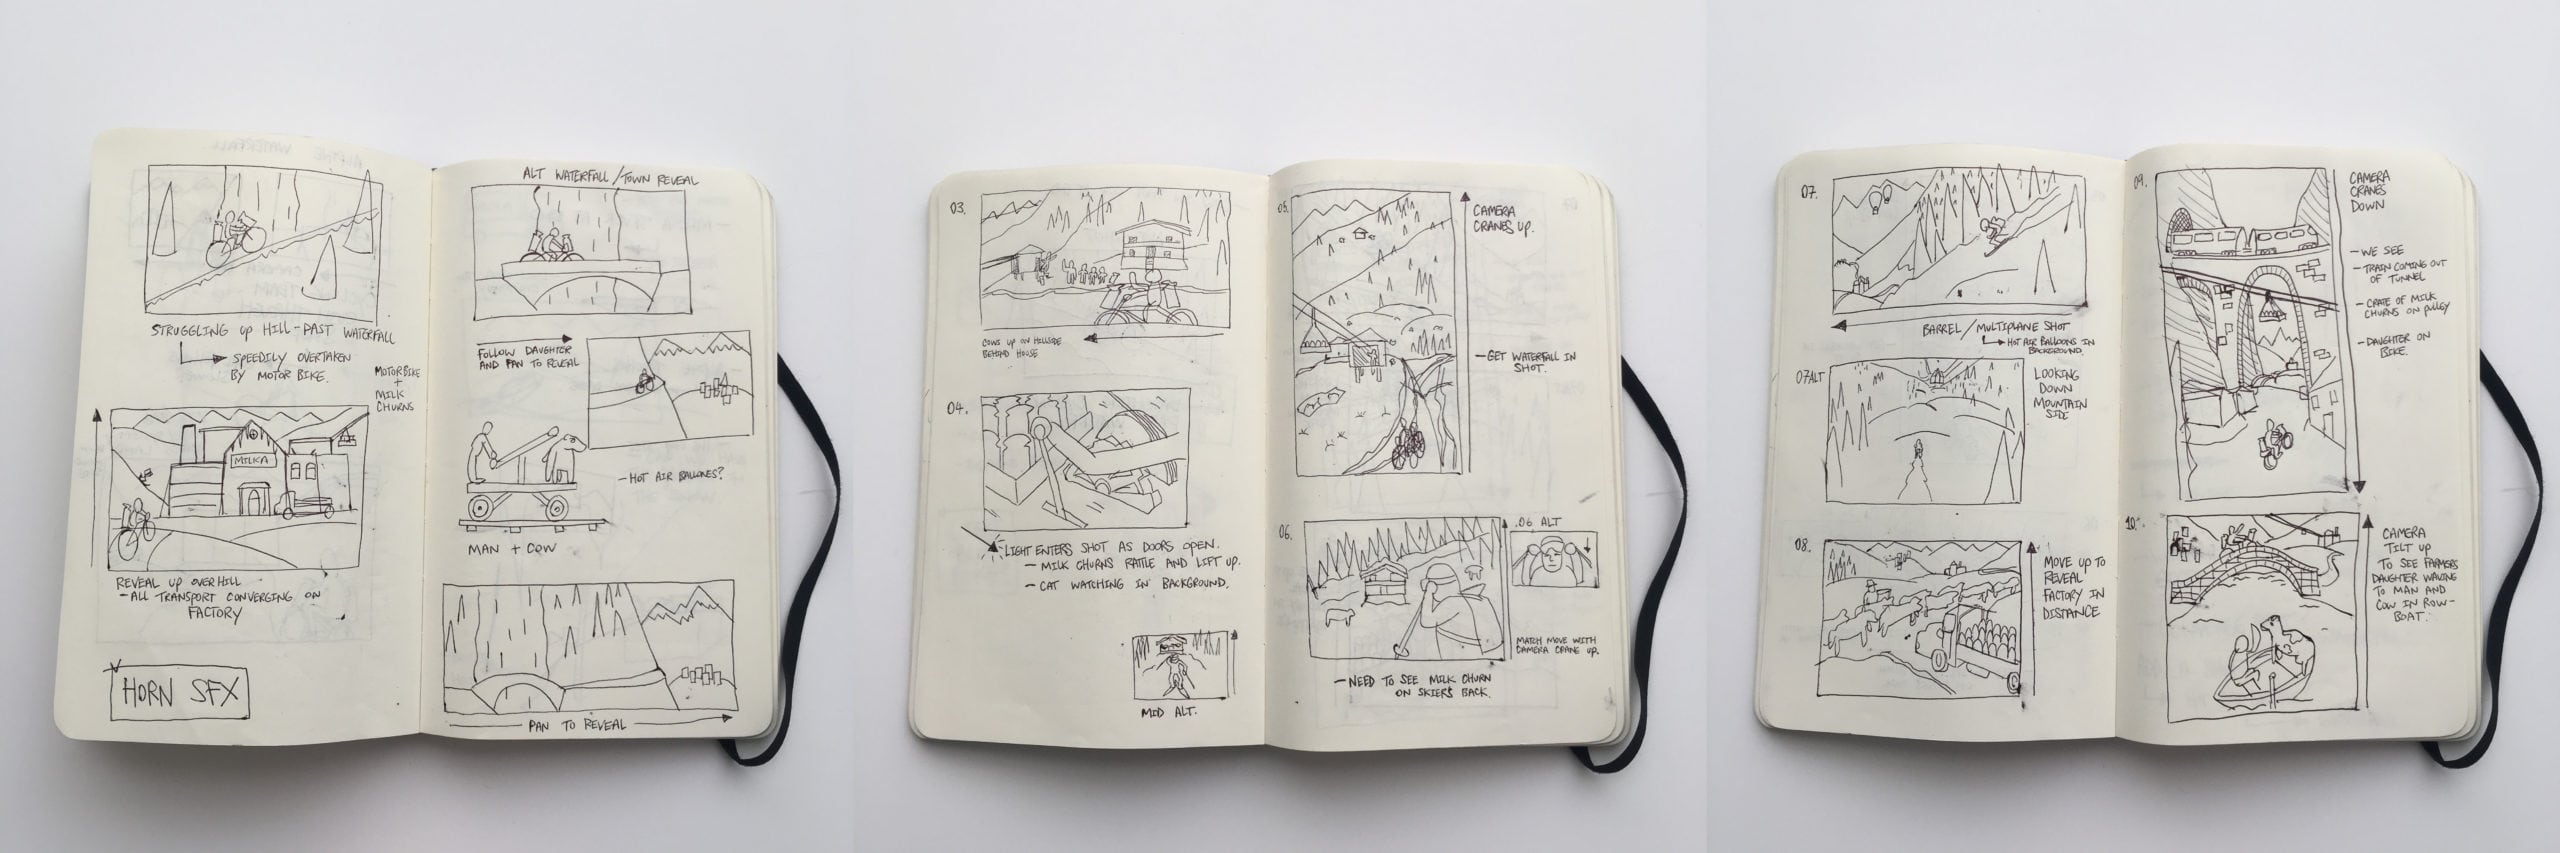 STRUGGLING UP HILL - PAST WATERFALL
SPEEDILY OVERTAKEN
BY MOTOR BIKE.
MOTORBIKE
+
MILK
CHURNS
MILKA
REVEAL UP OVER HILL
- ALL TRANSPORT CONVERGING ON
FACTORY
HORN SFX
ALT WATERFALL / TOWN REVEAL
FOLLOW DAUGHTER
AND PAN TO REVEAL
- HOT AIR BALLONES?
MAN + COW
PAN TO REVEAL
03.
COWS UP ON HILLSIDE
BEHIND HOUSE
04.
LIGHT ENTERS SHOT AS DOORS OPEN.
- MILK CHURNS RATTLE AND LIFT UP.
- CAT WATCHING IN BACKGROUND.
MID ALT.
05.
CAMERA
CRANES UP.
- GET WATERFALL IN
SHOT.
06.
.06 ALT
MATCH MOVE WITH
CAMERA CRANE UP.
- NEED TO SEE MILK CHURN
ON SKIERS BACK.
07.
BARREL / MULTIPLANE SHOT
HOT AIR BALLOONS IN
BACKGROUND.
07ALT
LOOKING
DOWN
MOUNTAIN
SIDE
08.
MOVE UP TO
REVEAL
FACTORY IN
DISTANCE
09.
CAMERA
CRANES
DOWN
- WE SEE
- TRAIN COMING OUT
OF TUNNEL
- CRATE OF MILK
CHURNS ON PULLEY
- DAUGHTER ON
BIKE.
10.
CAMERA
TILT UP
TO SEE FARMERS
DAUGHTER WAVING
TO MAN AND
COW IN ROW-
BOAT.